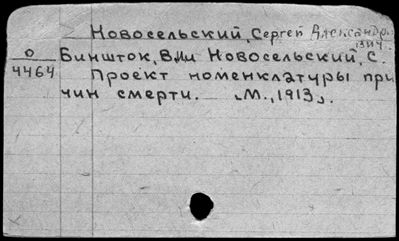 Новосельский, Сергей Александр.
о Биншток, В. и Новосельский, С.
4464 Проект номенклатуры при
чин смерти. М., 1913.